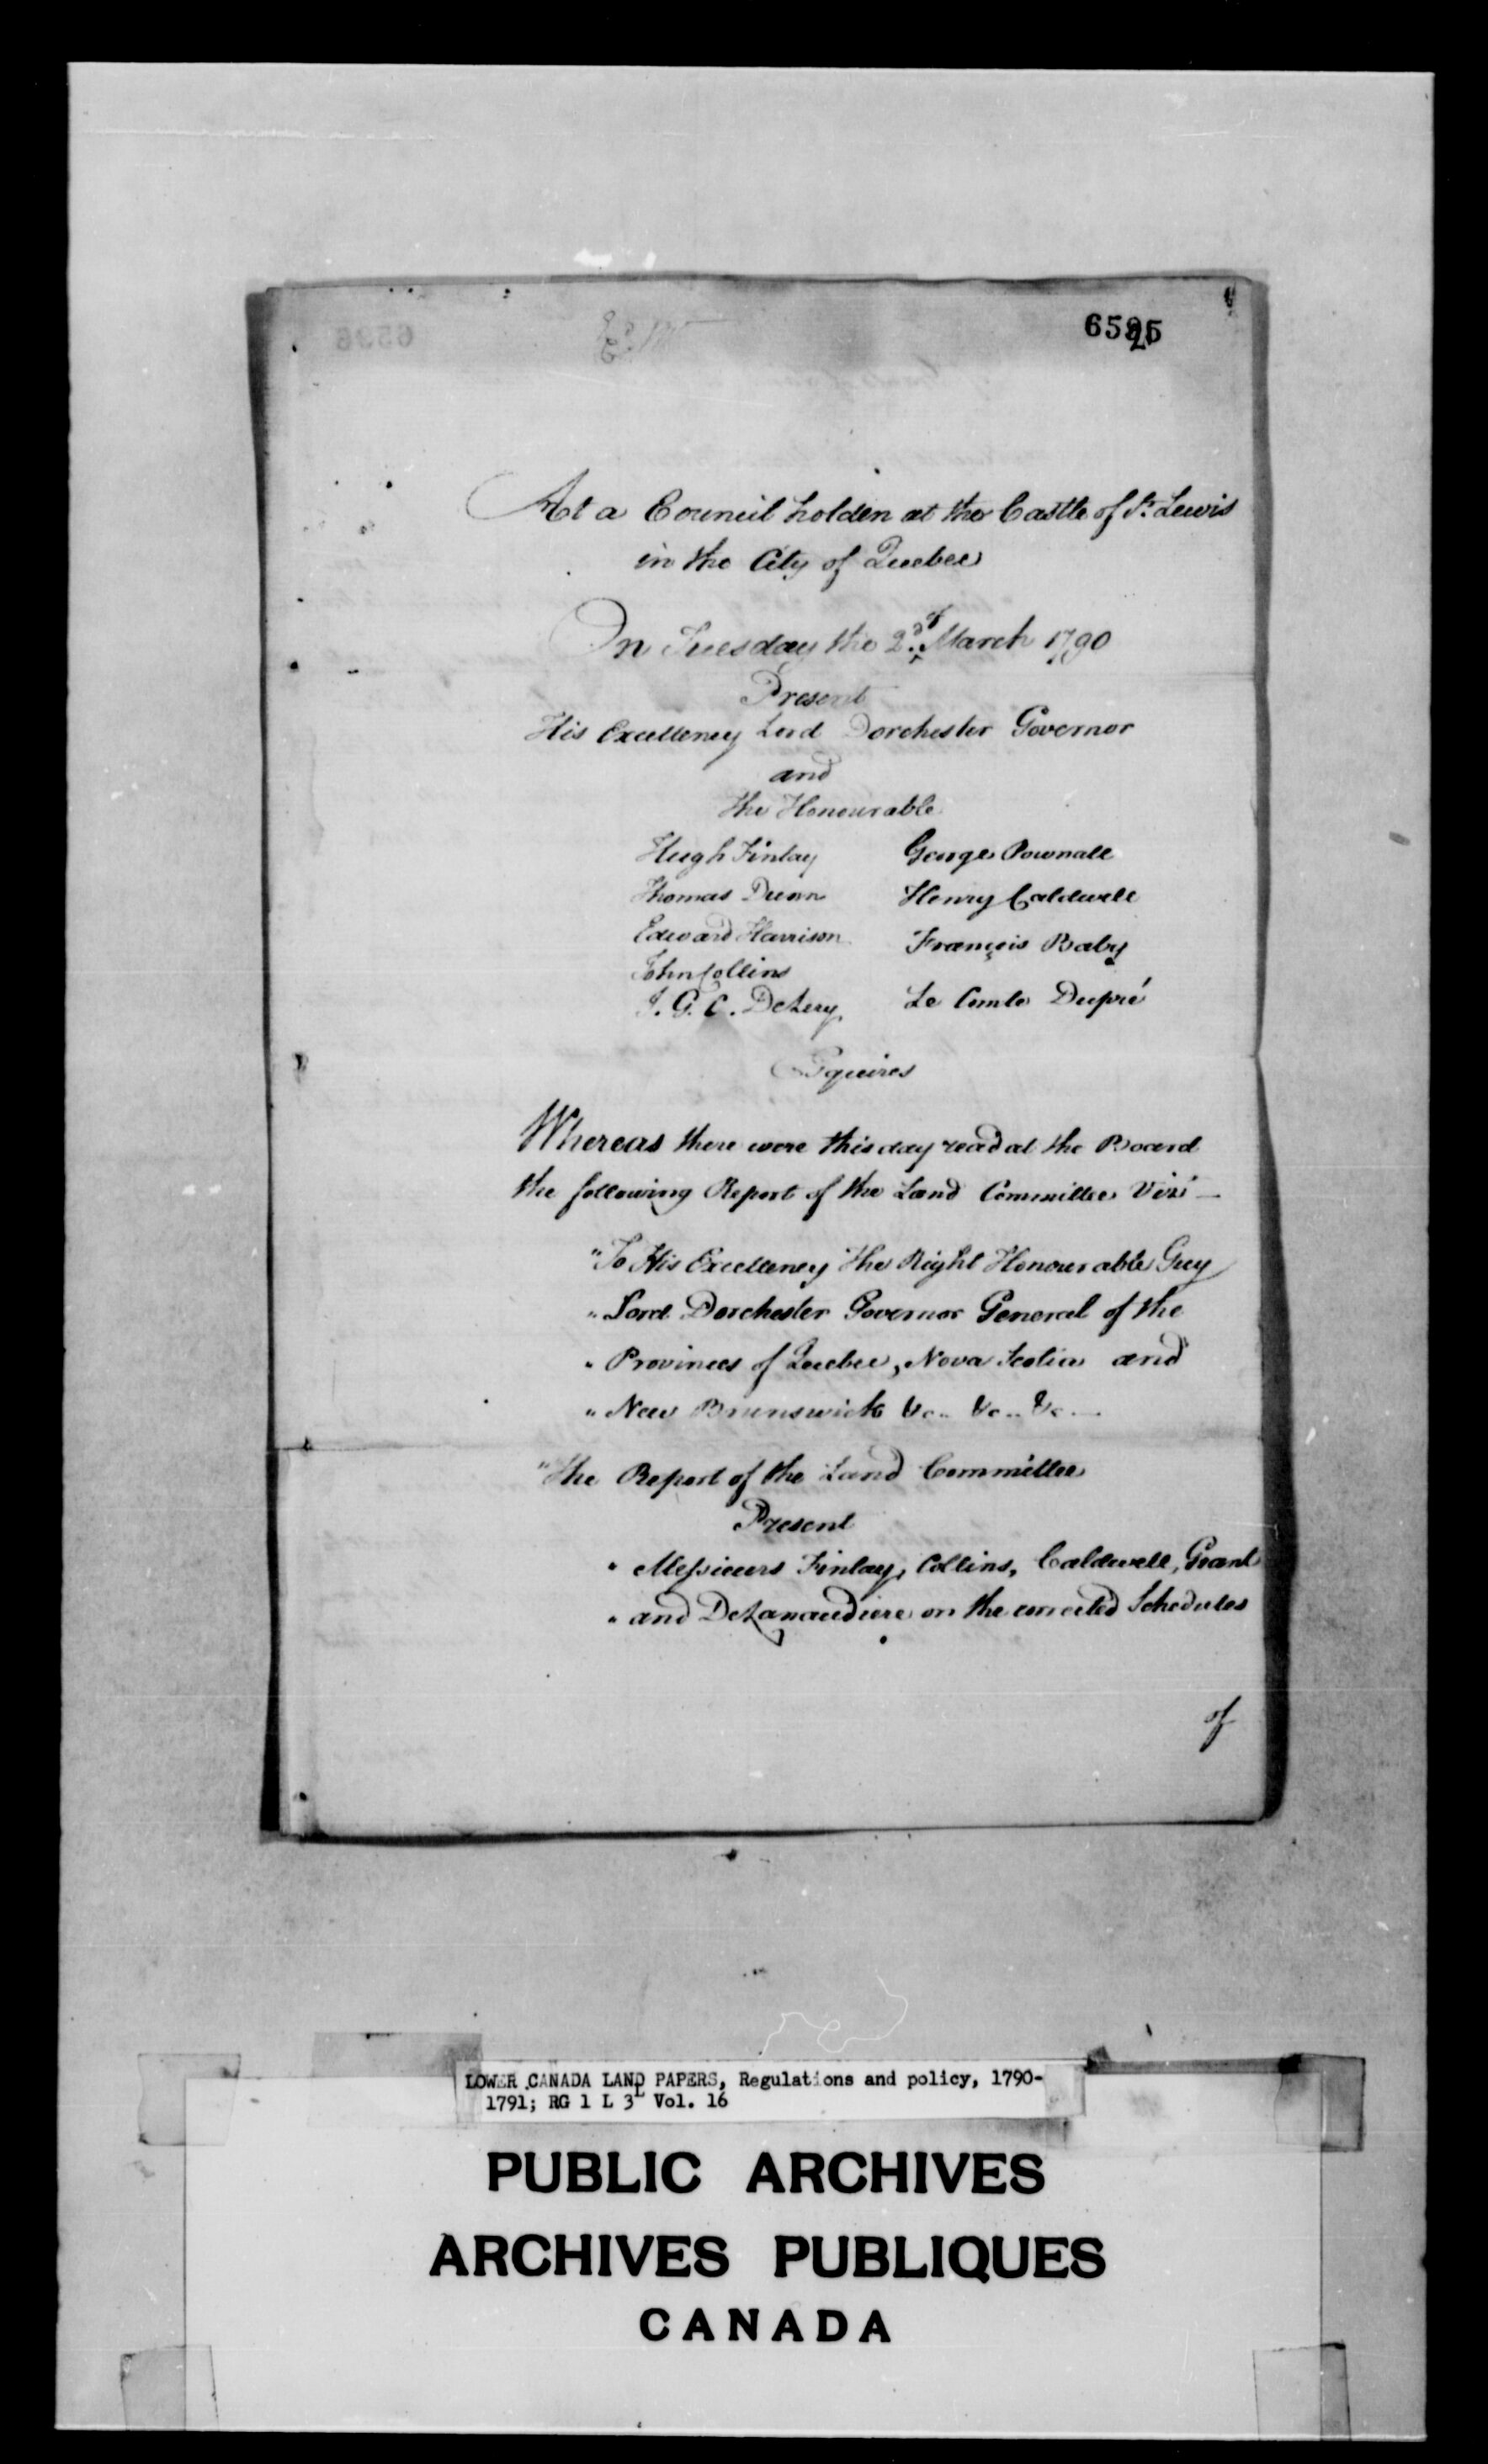 6595
At a Council holden at the Castle of St. Lewis
in the City of Quebec
On Tuesday the 2d. of March 1790
Present
His Excellency Lord Dorchester Governor
and
the Honourable
Hugh Finlay George Pownall
Thomas Dunn Henry Caldwell
Edward Harrison François Baby
John Collins
J. G. C. DeLery Le Comte Dupré
Esquires
Whereas there were this day read at the Board
the following Report of the Land Committee Viz:
"To His Excellency the Right Honourable Guy
" Lord Dorchester Governor General of the
" Provinces of Quebec, Nova Scotia and
" New Brunswick &c.. &c.. &c—
"The Report of the Land Committee
Present
" Messieurs Finlay, Collins, Caldwell, Grant
" and DeLanaudiere on the corrected Schedules
of
LOWER CANADA LAND PAPERS, Regulations and policy, 1790-
1791; RG 1 L 3L Vol. 16
PUBLIC ARCHIVES
ARCHIVES PUBLIQUES
CANADA